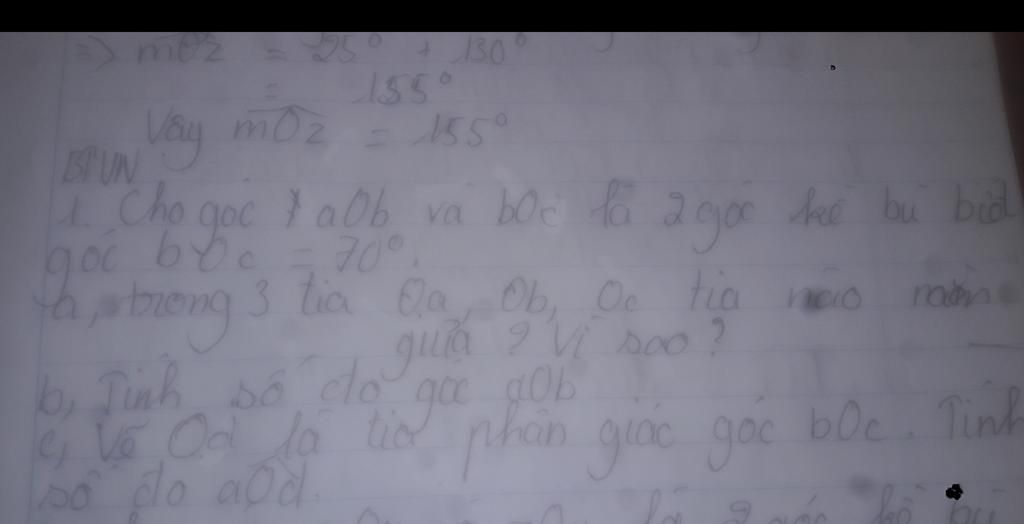 => mOz = 25° + 130°
= 155°
Vậy mOz = 155°
BTVN
1. Cho góc aOb và bOc là 2 góc kề bù biết
góc bOc = 70°.
a, trong 3 tia Oa, Ob, Oc tia nào nằm
giữa ? Vì sao ?
b, Tính số đo góc aOb
c, Vẽ Od là tia phân giác góc bOc. Tính
số đo aOd.
là 2 góc kề bù